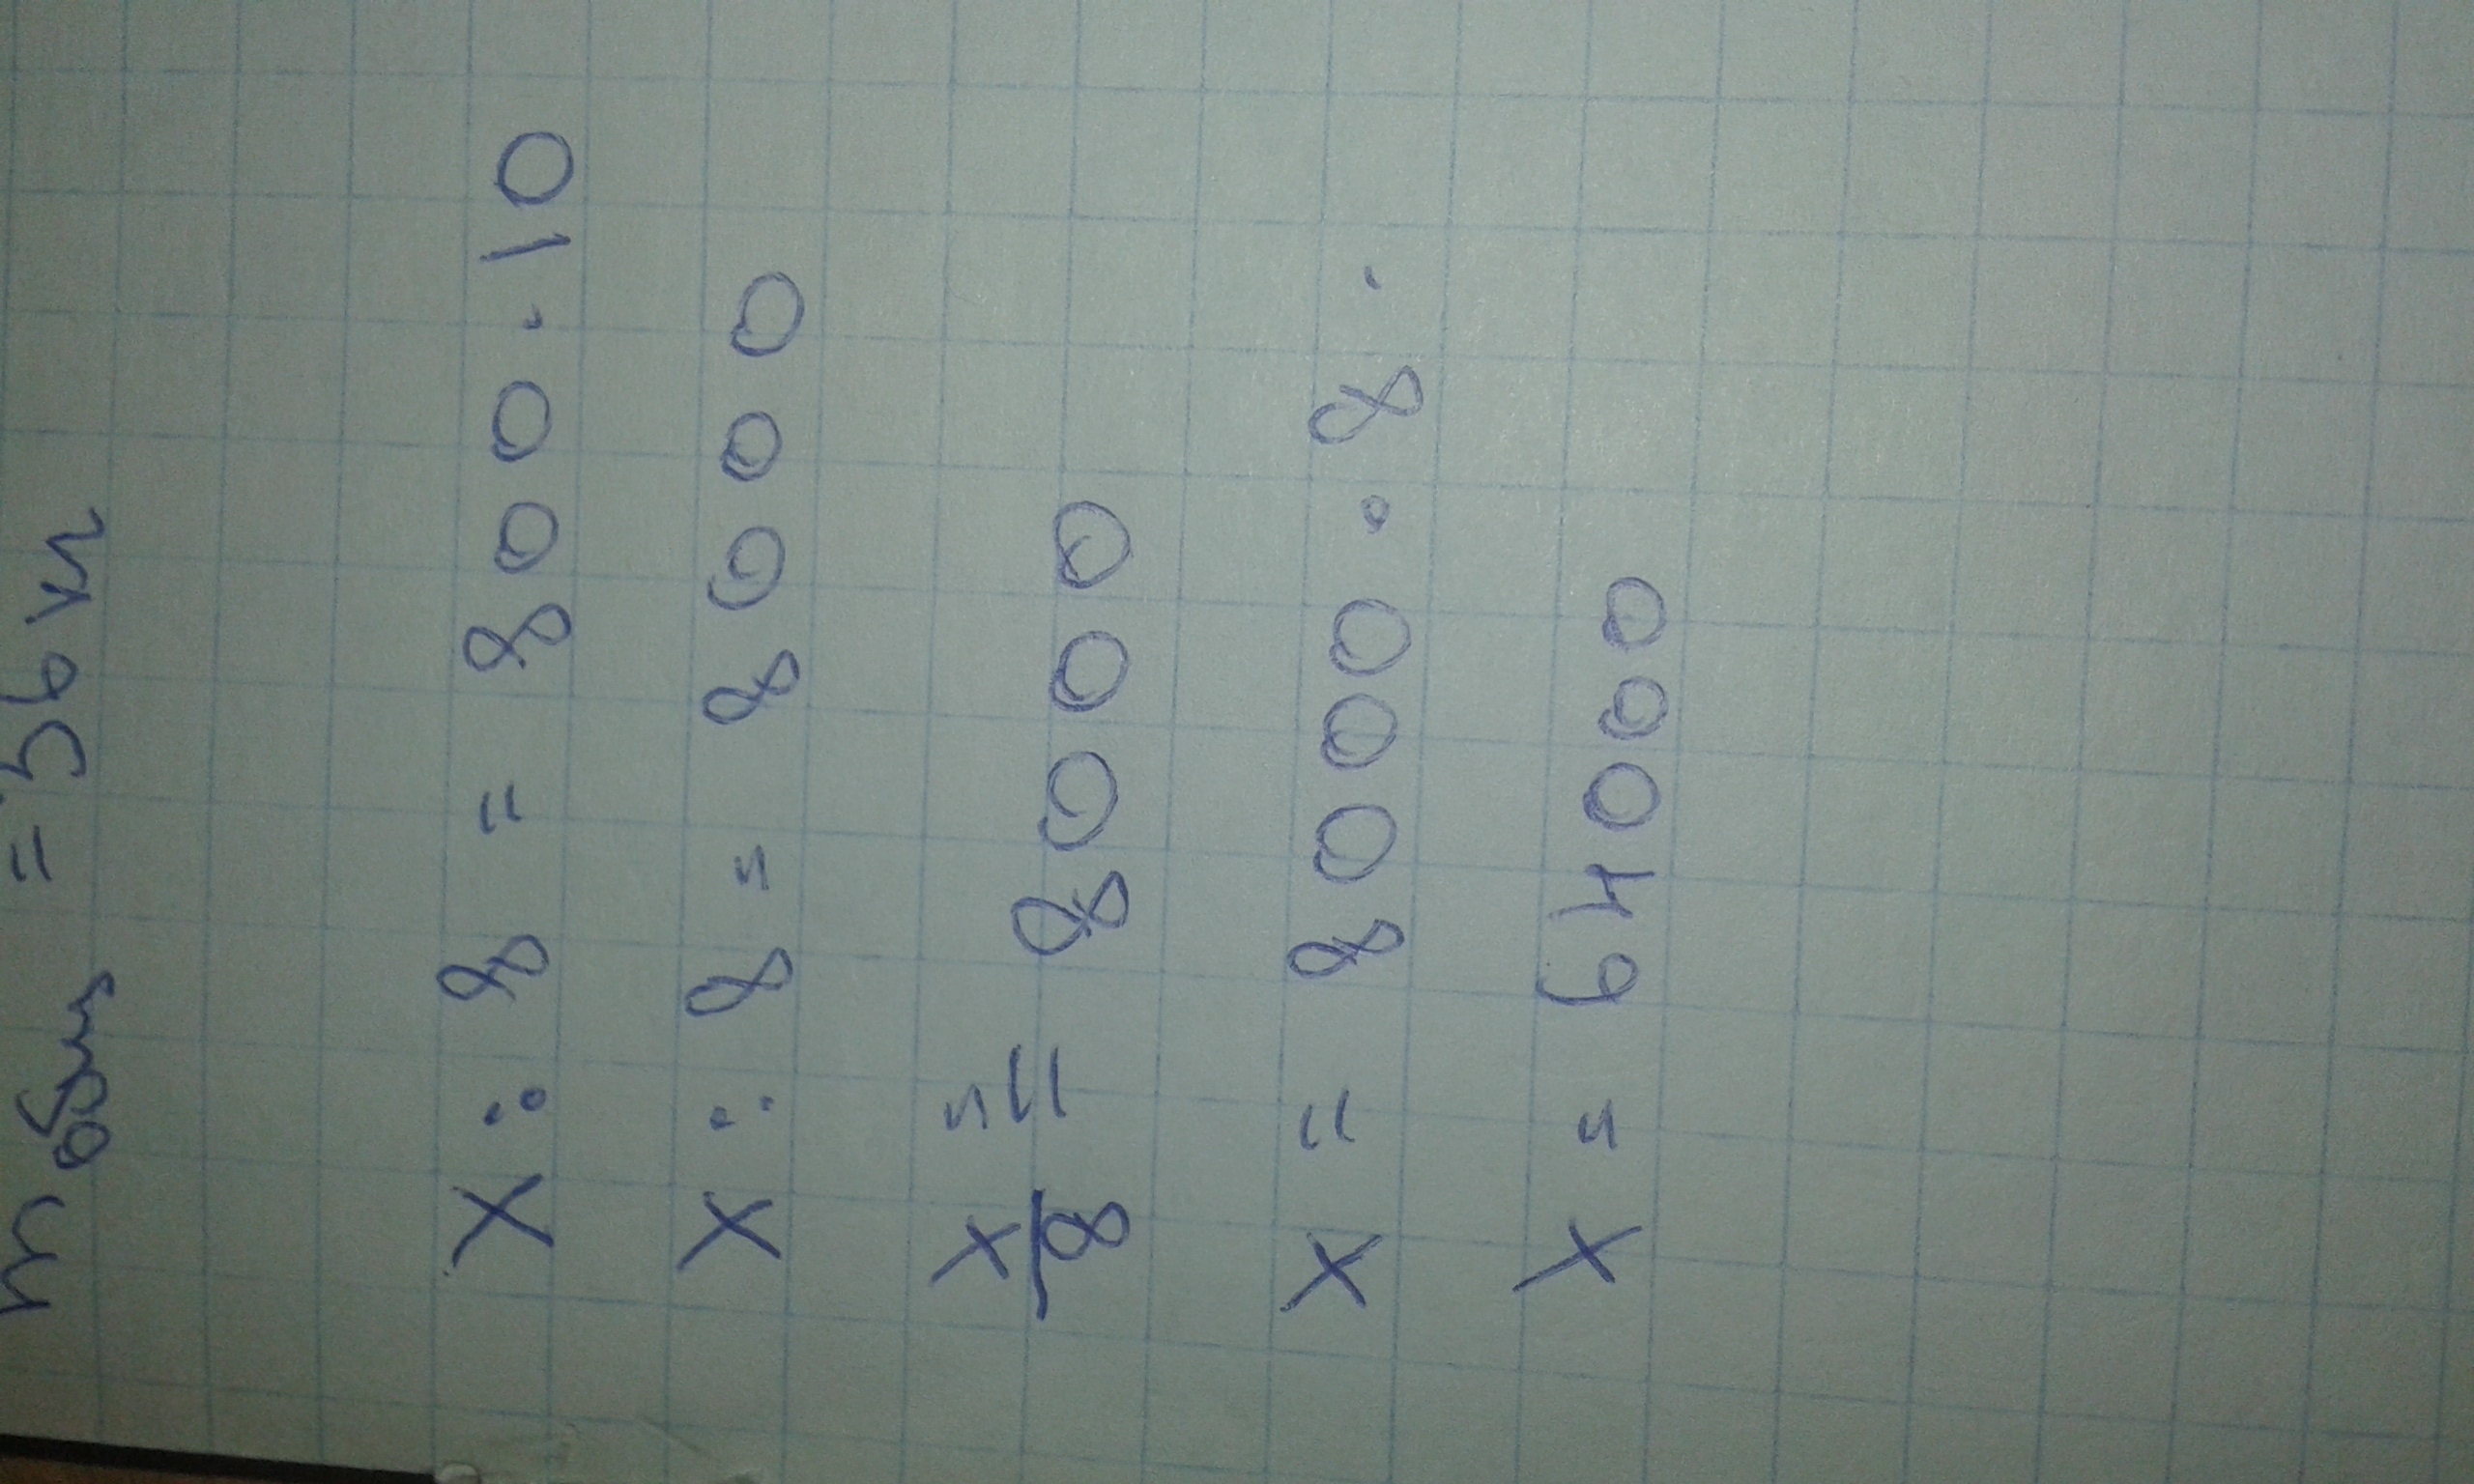 m общ = 56 кг
x : 8 = 800 · 10
x : 8 = 8000
x/8 = 8000
x = 8000 · 8 .
x = 64000